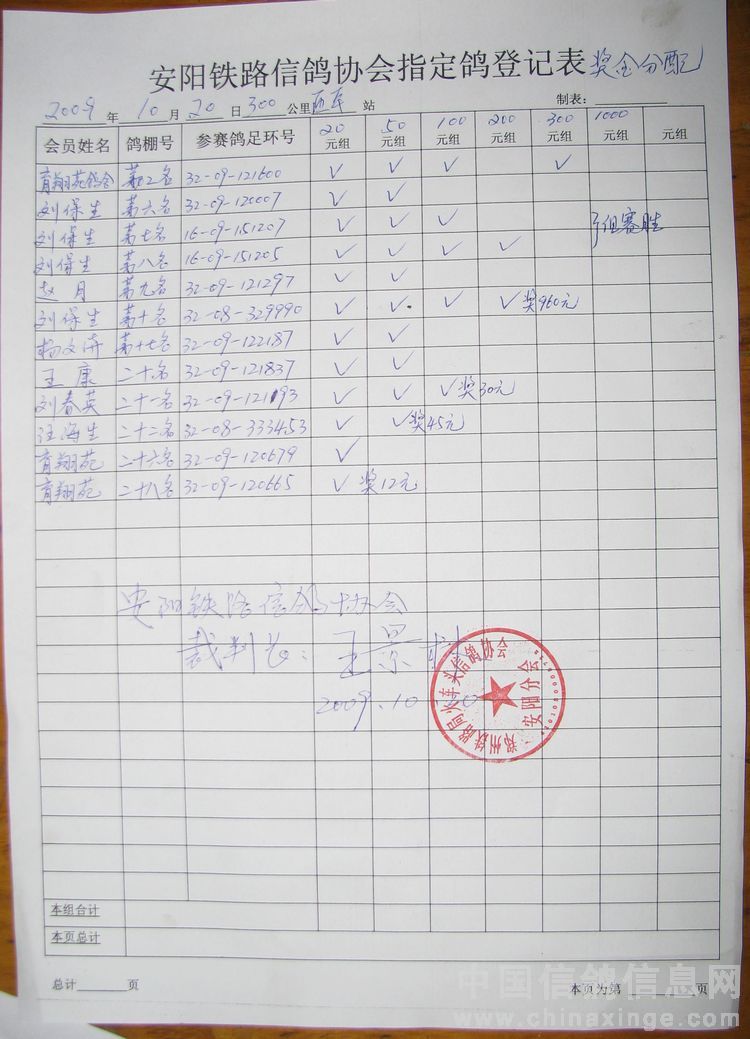 安阳铁路信鸽协会指定鸽登记表 奖金分配
2009 年 10 月 20 日 300 公里 站 制表:
会员姓名 鸽棚号 参赛鸽足环号 20元组 50元组 100元组 200元组 300元组 1000元组 元组
育翔苑鸽舍 第 名 32-09-121600 ✓ ✓ ✓ ✓
刘保生 第六名 32-09-120007 ✓ ✓
刘保生 第七名 16-09-151207 ✓ ✓ ✓ 组赛胜
刘保生 第八名 16-09-151205 ✓ ✓ ✓ ✓
赵月 第九名 32-09-121297 ✓ ✓
刘保生 第十名 32-08-329990 ✓ ✓ ✓ ✓ 奖960元
杨文 第十七名 32-09-122187 ✓ ✓
王康 二十名 32-09-121837 ✓ ✓
刘春英 二十一名 32-09-121193 ✓ ✓ ✓ 奖30元
汪海生 二十二名 32-08-333453 ✓ ✓ 奖45元
育翔苑 二十六名 32-09-120679 ✓
育翔苑 二十八名 32-09-120665 ✓ 奖12元
安阳铁路信鸽协会
裁判长: 王景
2009.10.20
郑州铁路局火车头信鸽协会
安阳分会
本组合计
本页总计
总计 页 本页为第 页
中国信鸽信息网
www.chinaxinge.com